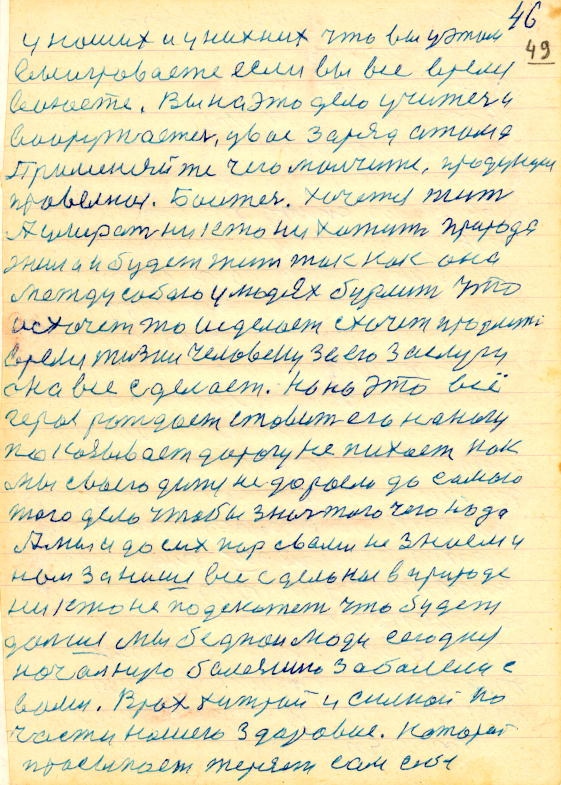 46
49
у наших и у них них что вы у этом
выиграваете если вы все время
воюете. Вы на это дело учитеся
вооружаетеся, у вас заряд атома
Применяй те чего молчите, продукция
провелная. Боитеся. Хочется жит
А умират ни кто ни хотит природа
жила и будет жит так как она
между собою у людях бурлит что
схочет то и сделает схочет продлит
время жизни человеку за его заслугу
она все сделает. Но на это всё
героя рождает ставит его на ногу
показывает дорогу не пихает как
мы своего дитя не доросло до самого
того дела чтобы знат того чего нада
А мы и до сих пор свами не знаем и
нам за наши все сделаное в природе
ни кто не подскажет что будет
дальше мы бедной люди сегодня
начал нуро болеялино заболели с
вами. Врах хитрай и силной по
части нашего здоровие. Каторай
просыпает теряет сам себе